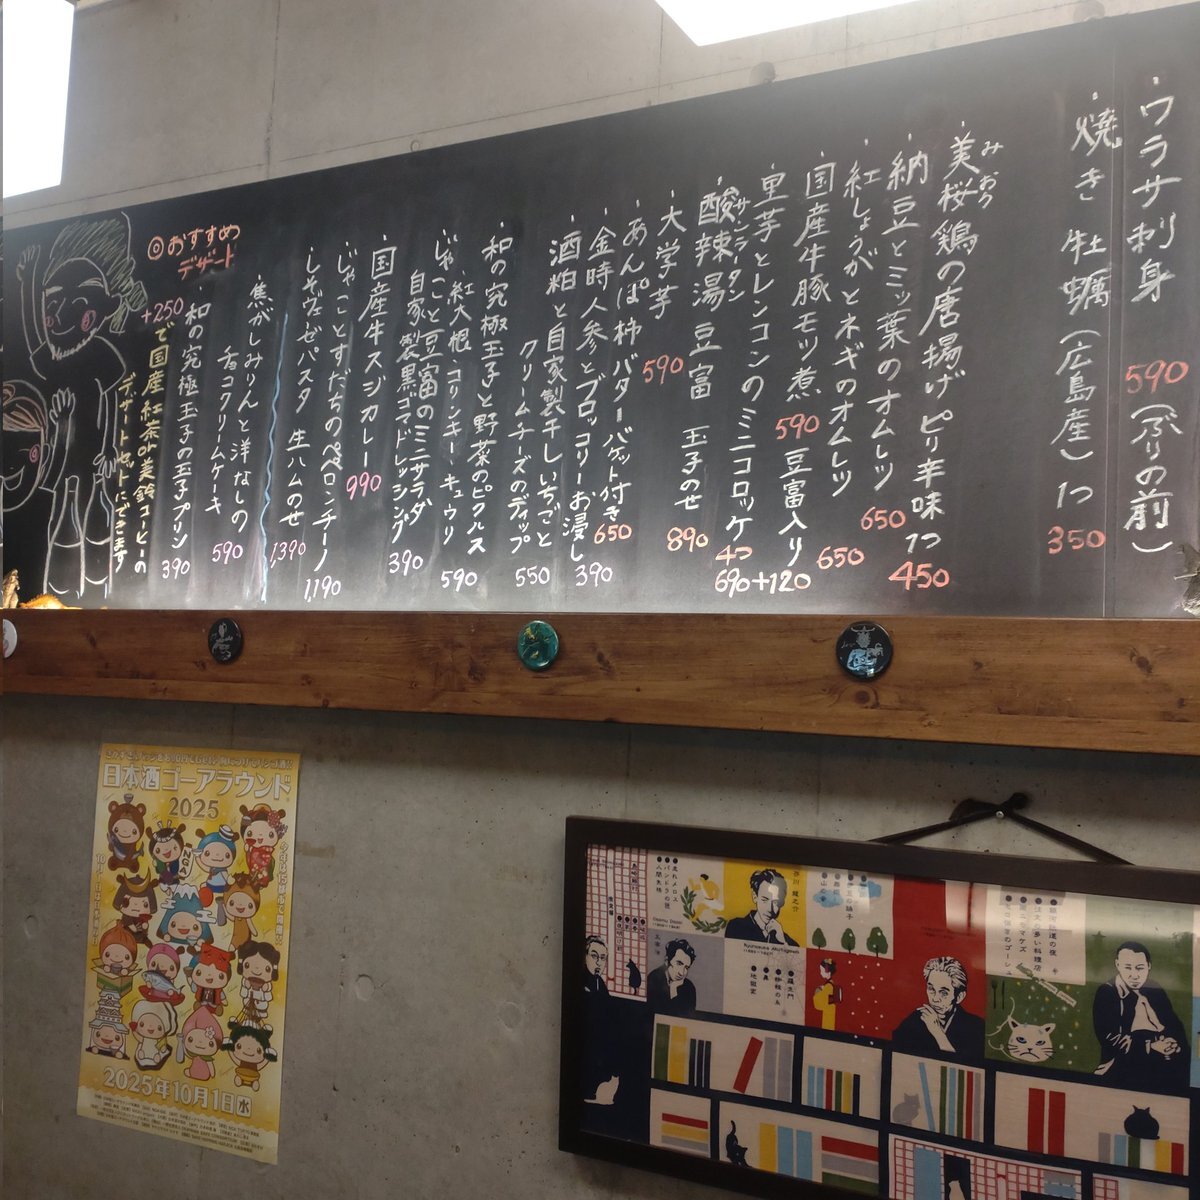 ・ワラサ刺身 590(ぶりの前)
・焼き牡蠣(広島産)1つ 350
みおう
・美桜鶏の唐揚げピリ辛味 1つ 450
・納豆とミツ葉のオムレツ 650
・紅しょうがとネギのオムレツ 650
・国産牛豚モツ煮 590 豆富入り +120
・里芋とレンコンのミニコロッケ 4つ 690
サンラータン
・酸辣湯豆富 玉子のせ 890
・大学芋 590
・あんぽ柿バターバゲット付き 650
・金時人参とブロッコリーお浸し 390
・酒粕と自家製干しいちごと
クリームチーズのディップ 550
・和の究極玉子と野菜のピクルス
紅大根、コリンキー、キュウリ 590
・じゃこと豆富のミニサラダ
自家製黒ゴマドレッシング 390
・国産牛スジカレー 990
・じゃことすだちのペペロンチーノ 1,190
・しそヴェゼパスタ 生ハムのせ 1,390
◎おすすめ
デザート
・焦がしみりんと洋なしの
チョコクリームケーキ 590
・和の究極玉子の玉子プリン 390
+250で国産紅茶or美鈴コーヒーの
デザートセットにできます
日本酒ゴーアラウンド
2025
NGA
2025年10月1日水
走れメロス
パンドラの匣
人間失格
Osamu Dazai
芥川龍之介
Ryunosuke Akutagawa
羅生門
蜘蛛の糸
鼻
地獄変
銀河鉄道の夜
注文の多い料理店
風の又三郎
セロ弾きのゴーシュ